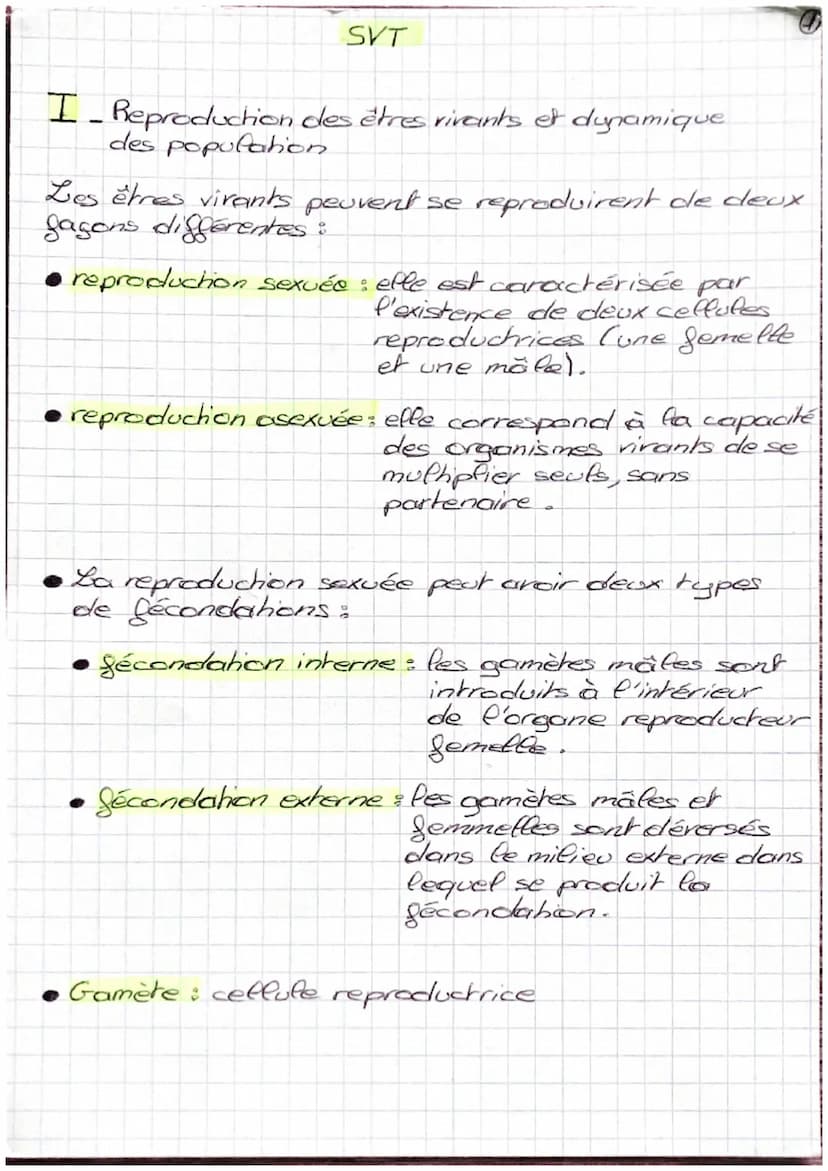 1
SVT
I - Reproduction des êtres vivants et dynamique
des population
Les êtres vivants peuvent se reproduirent de deux
façons différentes :
• reproduction sexuée : elle est caractérisée par
l'existence de deux cellules
reproductrices (une femelle
et une mâle).
• reproduction asexuée : elle correspond à la capacité
des organismes vivants de se
multiplier seuls, sans
partenaire.
• La reproduction sexuée peut avoir deux types
de fécondations :
• fécondation interne : les gamètes mâles sont
introduits à l'intérieur
de l'organe reproducteur
femelle.
• fécondation externe : les gamètes mâles et
femmelles sont déversés
dans le milieu externe dans
lequel se produit la
fécondation.
• Gamète : cellule reproductrice